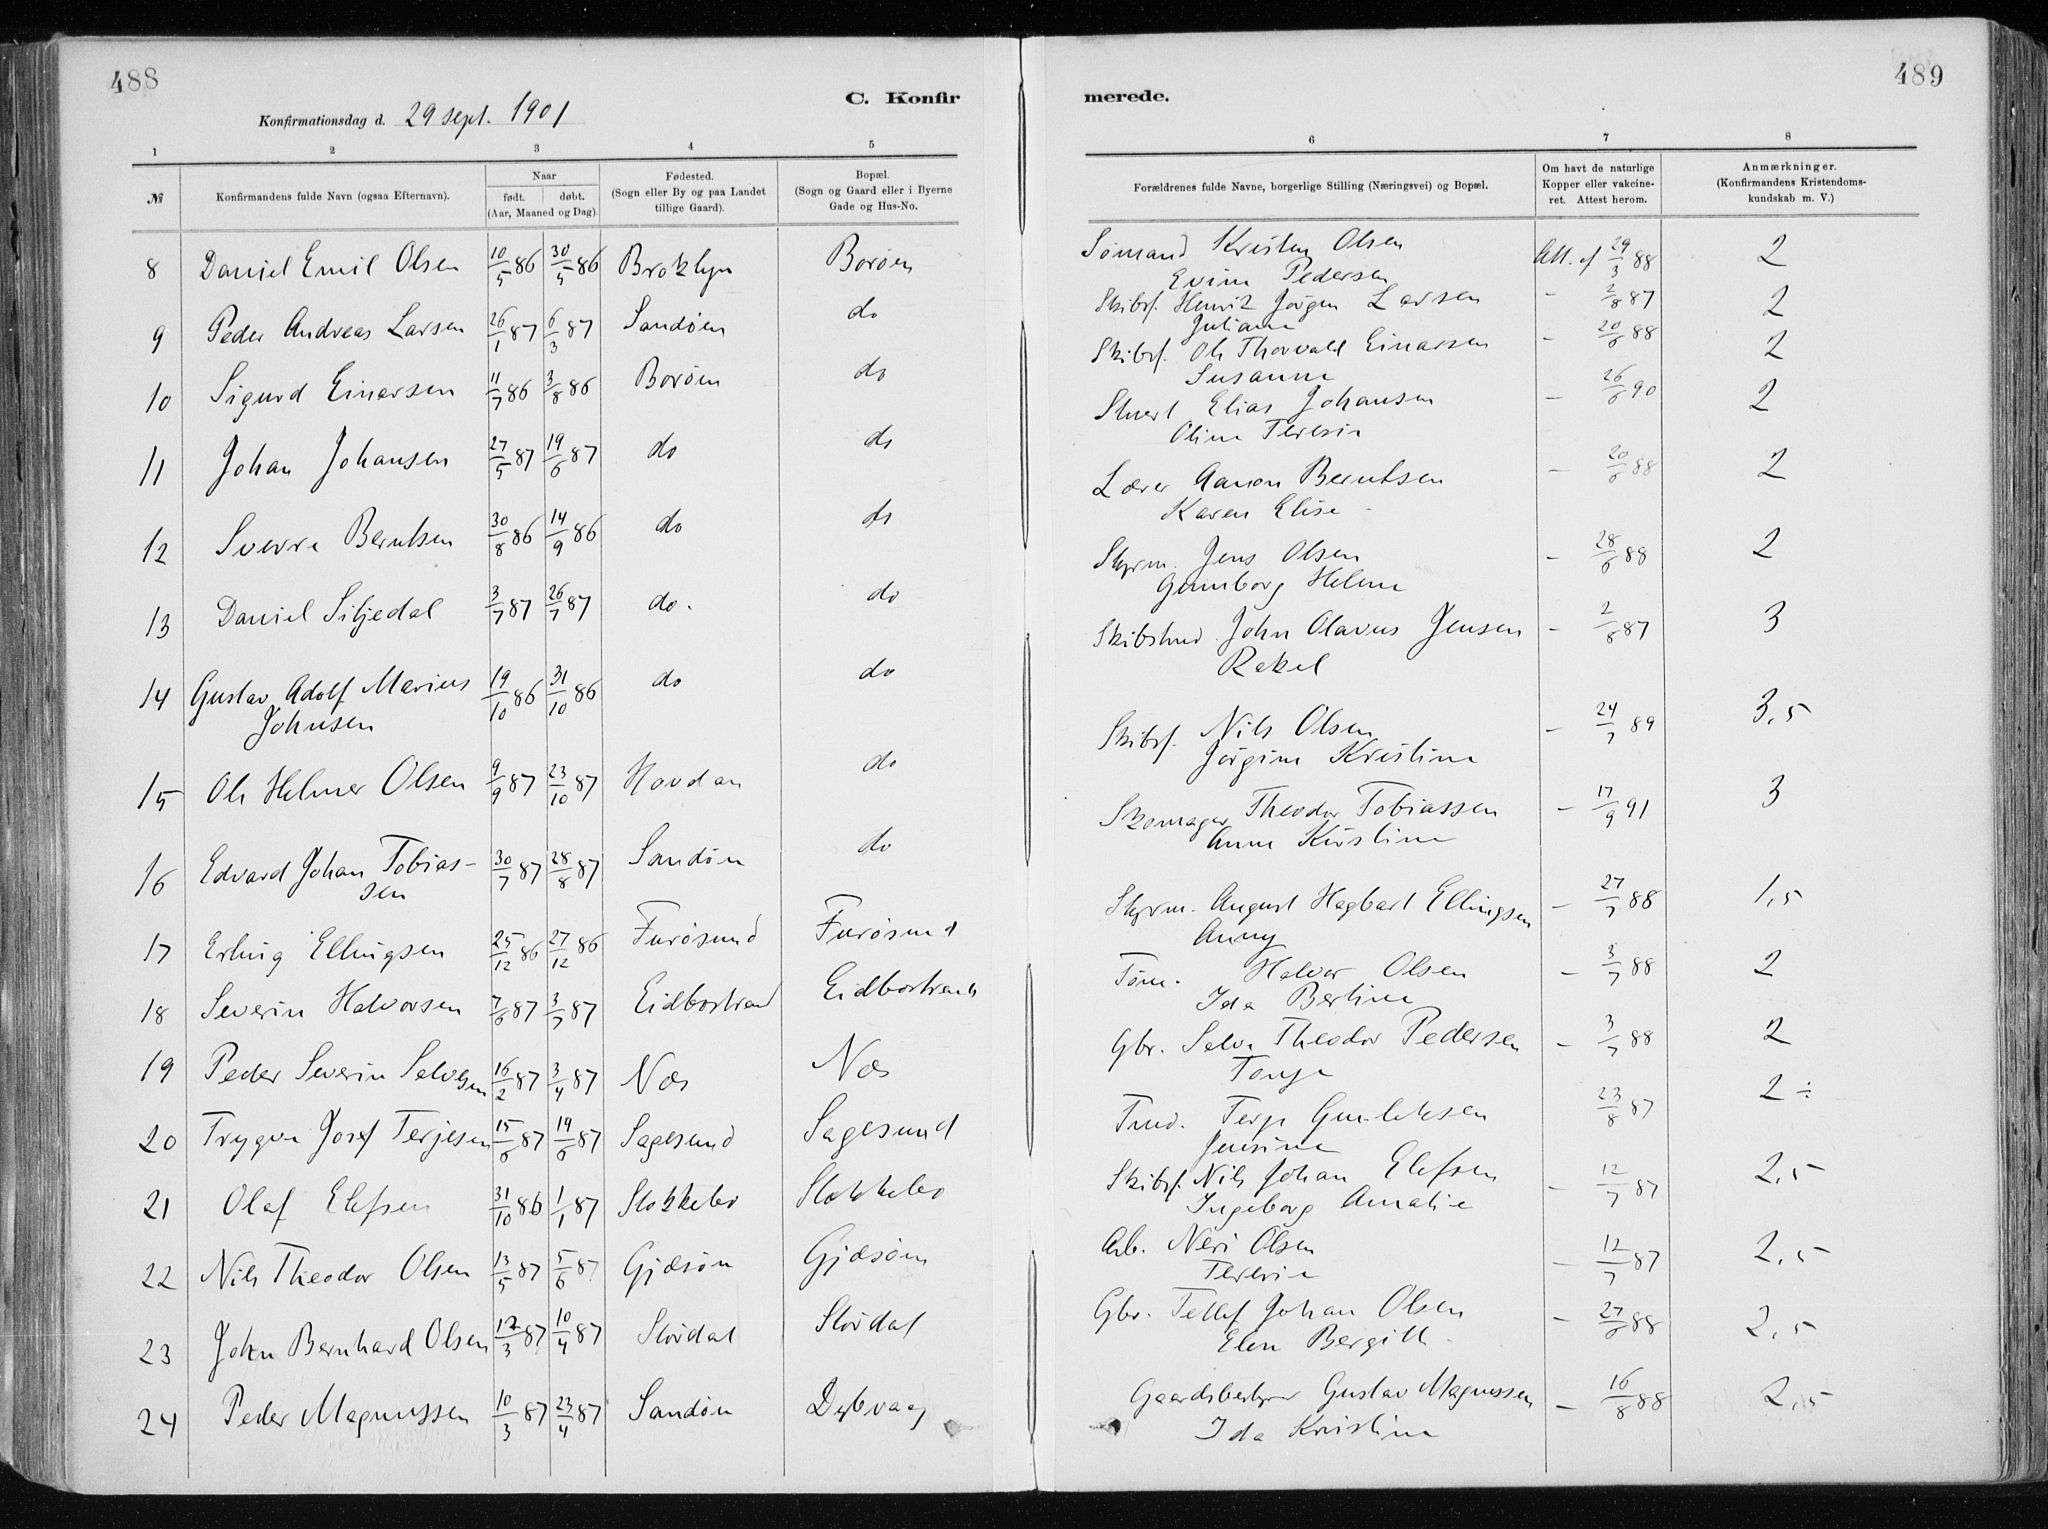 488
489
C. Konfir
merede.
Konfirmationsdag d. 29 sept. 1901
1 2 3 4 5 6 7 8
№ Konfirmandens fulde Navn (ogsaa Efternavn). Naar født. døbt. (Aar, Maaned og Dag). Fødested. (Sogn eller By og paa Landet tillige Gaard). Bopæl. (Sogn og Gaard eller i Byerne Gade og Hus-No. Forældrenes fulde Navne, borgerlige Stilling (Næringsvei) og Bopæl. Om havt de naturlige Kopper eller vakcineret. Attest herom. Anmærkninger. (Konfirmandens Kristendomskundskab m. V.)
8 Daniel Emil Olsen 10/5 86 30/5 86 Broklyn Borøen Sømand Kristen Olsen Att. af 29/3 88 2
Evine Pedersen
9 Peder Andreas Larsen 26/1 87 6/3 87 Sandøen do Skibsf. Henrik Jørgen Larsen - 2/8 87 2
Juliane
10 Sigurd Einarsen 11/7 86 3/8 86 Borøen do Skibsf. Ole Thorvald Einarsen - 20/6 88 2
Susanne
11 Johan Johansen 27/5 87 19/6 87 do do Stuert Elias Johansen - 26/6 90 2
Oline Teresie
12 Sverre Berntsen 30/8 86 14/9 86 do do Lærer Aanon Berntsen - 20/6 88 2
Karen Elise
13 Daniel Siljedal 3/7 87 26/7 87 do. do Styrm. Jens Olsen - 28/6 88 2
Gunnborg Helene
14 Gustav Adolf Marius 19/10 86 31/10 86 do do Skibstmd. John Olavus Jensen - 2/8 87 3
Johnsen Rakel
15 Ole Helmer Olsen 9/9 87 23/10 87 Hovdan do Skibsf. Nils Olsen - 24/7 89 3,5
Jørgine Kristine
16 Edvard Johan Tobias- 30/7 87 28/8 87 Sandøen do Skomager Theodor Tobiassen - 17/9 91 3
sen Anne Kirstine
17 Erling Ellingsen 25/12 86 27/12 86 Furøsund Furøsund Styrm. August Hagbart Ellingsen - 27/7 88 1,5
Anny
18 Severin Halvorsen 7/6 87 3/7 87 Eidbostrand Eidbostrand Tøm. Halvor Olsen - 3/7 88 2
Ida Bertine
19 Peder Severin Selvesen 16/2 87 3/4 87 Næs Næs Gbr. Selve Theodor Pedersen - 3/7 88 2
Tonje
20 Trygve Josef Terjesen 15/6 87 19/6 87 Sagesund Sagesund Tmd. Terje Gunleksen 23/8 87 2÷
Jensine
21 Olaf Elefsen 31/10 86 1/1 87 Stokkebo Stokkebo Skibsf. Nils Johan Elefsen - 12/7 87 2,5
Ingeborg Amalie
22 Nils Theodor Olsen 13/5 87 5/6 87 Gjæsøen Gjæsøen Arb. Neri Olsen - 12/7 87 2,5
Teresie
23 John Bernhard Olsen 12/3 87 10/4 87 Slørdal Slørdal Gbr. Tellef Johan Olsen - 27/6 88 2,5
Elen Bergitte
24 Peder Magnussen 10/3 87 23/4 87 Sandøen Dybvaag Gaardsbestyrer Gustav Magnussen - 16/8 88 2,5
Ida Kristine